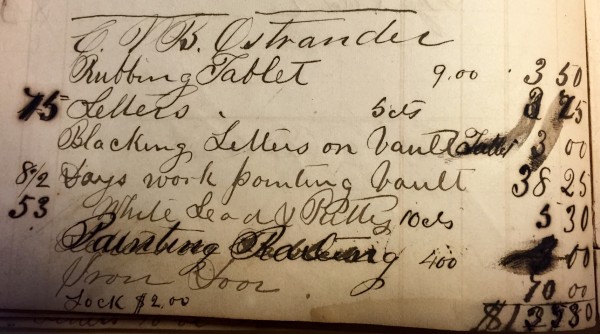 C. V. B. Ostrander
Rubbing Tablet 9.00 3 50
75 Letters 5cts 3 75
Blacking Letters on Vault 3 00
8½ Days work pointing Vault 38 25
53 White Lead & Putty 10cts 5 30
Painting 400 00
Iron Door 70 00
Lock $2.00